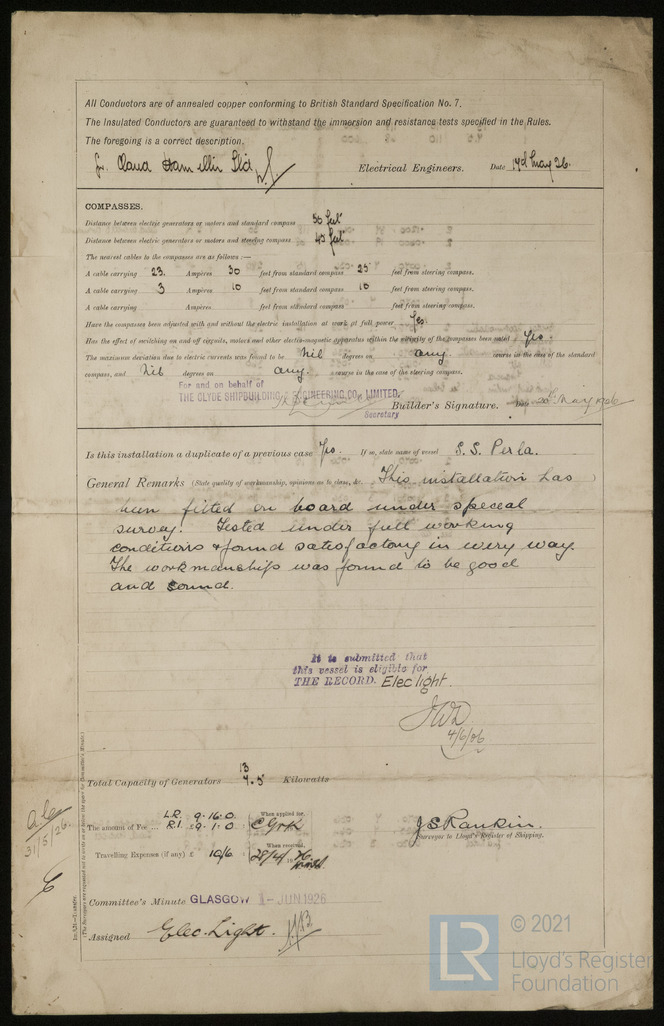 All Conductors are of annealed copper conforming to British Standard Specification No. 7.
The Insulated Conductors are guaranteed to withstand the immersion and resistance tests specified in the Rules.
The foregoing is a correct description.
Claud Hamilton Ltd Electrical Engineers. Date May 26.
COMPASSES.
Distance between electric generators or motors and standard compass 50 feet
Distance between electric generators or motors and steering compass 45 feet
The nearest cables to the compasses are as follows:—
A cable carrying 23. Ampères 30 feet from standard compass 25 feet from steering compass.
A cable carrying 3 Ampères 10 feet from standard compass 10 feet from steering compass.
A cable carrying Ampères feet from standard compass feet from steering compass.
Have the compasses been adjusted with and without the electric installation at work at full power Yes
Has the effect of switching on and off circuits, motors and other electro-magnetic apparatus within the vicinity of the compasses been noted Yes.
The maximum deviation due to electric currents was found to be Nil degrees on any. course in the case of the standard
compass, and Nil degrees on any. course in the case of the steering compass.
For and on behalf of
THE CLYDE SHIPBUILDING & ENGINEERING CO., LIMITED.
Secretary Builder's Signature. Date 20th May 1926
Is this installation a duplicate of a previous case Yes. If so, state name of vessel S.S. Perla.
General Remarks (State quality of workmanship, opinions as to class, &c. This installation has
been fitted on board under special
survey. Tested under full working
conditions & found satisfactory in every way.
The workmanship was found to be good
and sound.
It is submitted that
this vessel is eligible for
THE RECORD. Elec light.
JWD
4/6/26
13
Total Capacity of Generators 7.5 Kilowatts
The amount of Fee ... L.R. 9.16.0 When applied for,
R.I. 9.1.0
J S Rankin.
Surveyor to Lloyd's Register of Shipping.
Travelling Expenses (if any) £ 10/6 When received,
31/5/26.
Committee's Minute GLASGOW 1 - JUN 1926
Assigned Elec. Light.
© 2021
LR
Lloyd's Register
Foundation